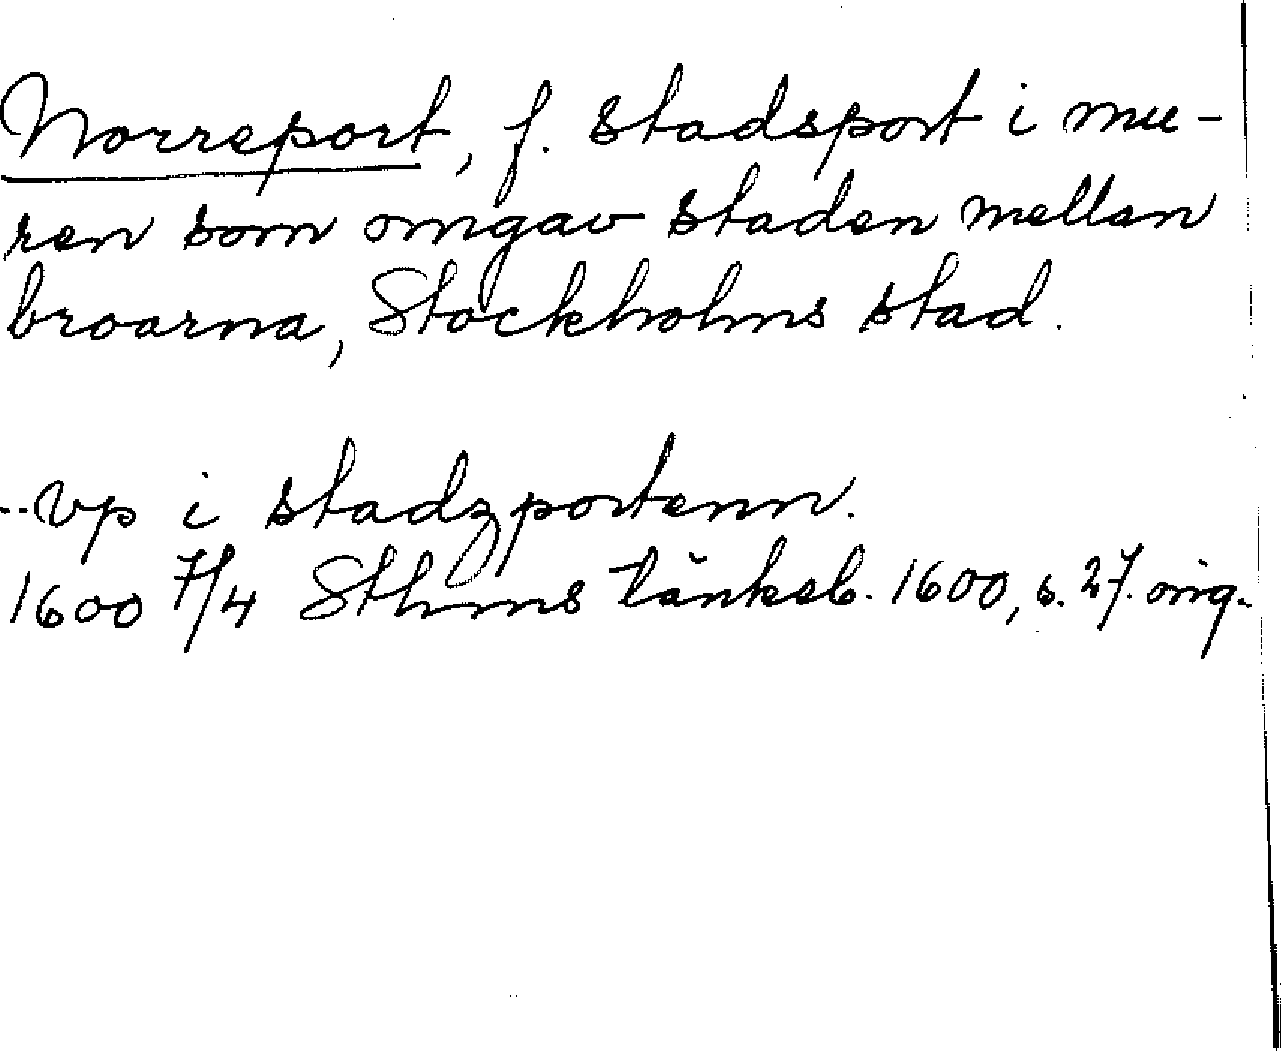 Norreport, f. stadsport i mu-
ren som omgav staden mellan
broarna, Stockholms stad.
--vp i stadzportenn.
1600 7/4 Sthms tänkeb. 1600, s. 27. orig.